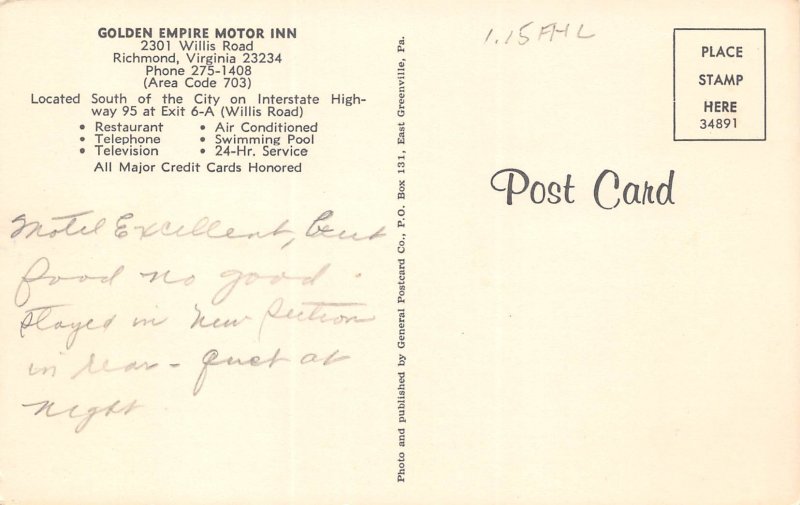 GOLDEN EMPIRE MOTOR INN
2301 Willis Road
Richmond, Virginia 23234
Phone 275-1408
(Area Code 703)
Located South of the City on Interstate High-
way 95 at Exit 6-A (Willis Road)
• Restaurant • Air Conditioned
• Telephone • Swimming Pool
• Television • 24-Hr. Service
All Major Credit Cards Honored
Motel Excellent, but
food no good.
Stayed in new section
in rear - quet at
night
Photo and published by General Postcard Co., P.O. Box 131, East Greenville, Pa.
1.15 FHL
PLACE
STAMP
HERE
34891
Post Card